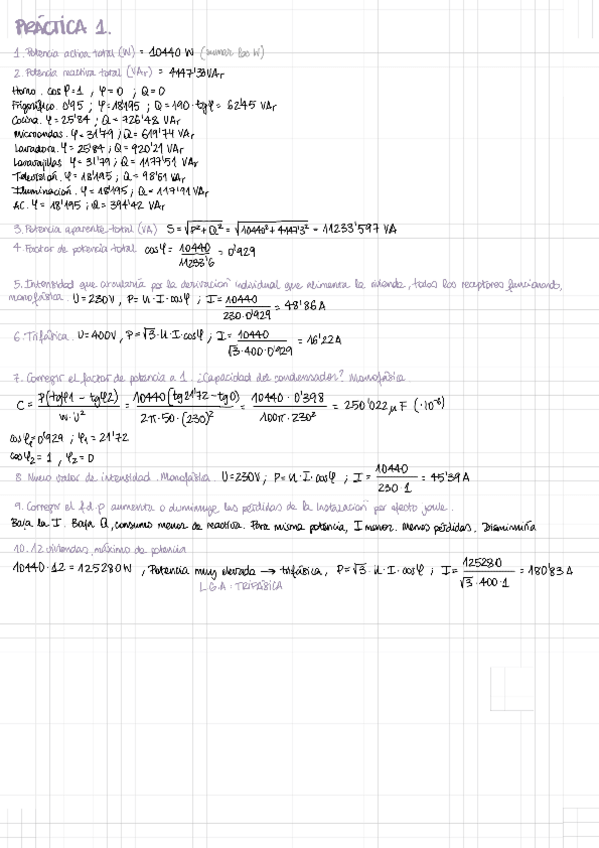 PRÁCTICA 1.
1. Potencia activa total (W) = 10440 W (sumar los W)
2. Potencia reactiva total (VAr) = 4147'33 VAr
Horno. cos φ=1 , φ=0 ; Q=0
Frigorífico. 0'95 ; φ=18'195 ; Q=190·tgφ= 62'45 VAr
Cocina. φ=25'84 ; Q= 726'48 VAr
Microondas. φ=31'79 ; Q= 619'74 VAr
Lavadora. φ=25'84 ; Q= 920'21 VAr
Lavavajillas φ=31'79 ; Q= 1177'51 VAr
Televisión. φ=18'195 ; Q= 98'61 VAr
Iluminación. φ=18'195 ; Q= 117'91 VAr
AC. φ= 18'195 ; Q= 394'42 VAr
3. Potencia aparente total (VA) S=√P²+Q² = √10440²+4147'3² = 11233'597 VA
4. Factor de potencia total cosφ= 10440 / 11233'6 = 0'929
5. Intensidad que circularía por la derivación individual que alimenta la vivienda, todos los receptores funcionando,
monofásica. U=230V , P= U·I·cosφ ; I= 10440 / 230·0'929 = 48'86 A
6. Trifásica. U=400V , P=√3·U·I·cosφ ; I= 10440 / √3·400·0'929 = 16'22A
7. Corregir el factor de potencia a 1. ¿Capacidad del condensador? Monofásica
C= P(tgφ1 - tgφ2) / w·U² = 10440(tg21'72-tg0) / 2π·50·(230)² = 10440·0'398 / 100π·230² = 250'022 μF (·10⁻⁶)
cosφ₁=0'929 ; φ₁=21'72
cosφ₂=1 , φ₂=0
8. Nuevo valor de intensidad. Monofásica. U=230V ; P=U·I·cosφ ; I= 10440 / 230·1 = 45'39 A
9. Corregir el f.d.p aumenta o disminuye las pérdidas de la instalación por efecto joule.
Baja la I. Baja Q, consumo menor de reactiva. Para misma potencia, I menor. Menos pérdidas. Disminuiría
10. 12 viviendas, máximo de potencia
10440·12 = 125280W , Potencia muy elevada → trifásica, P=√3·U·I·cosφ ; I= 125280 / √3·400·1 = 180'83 A
L.G.A: TRIFÁSICA